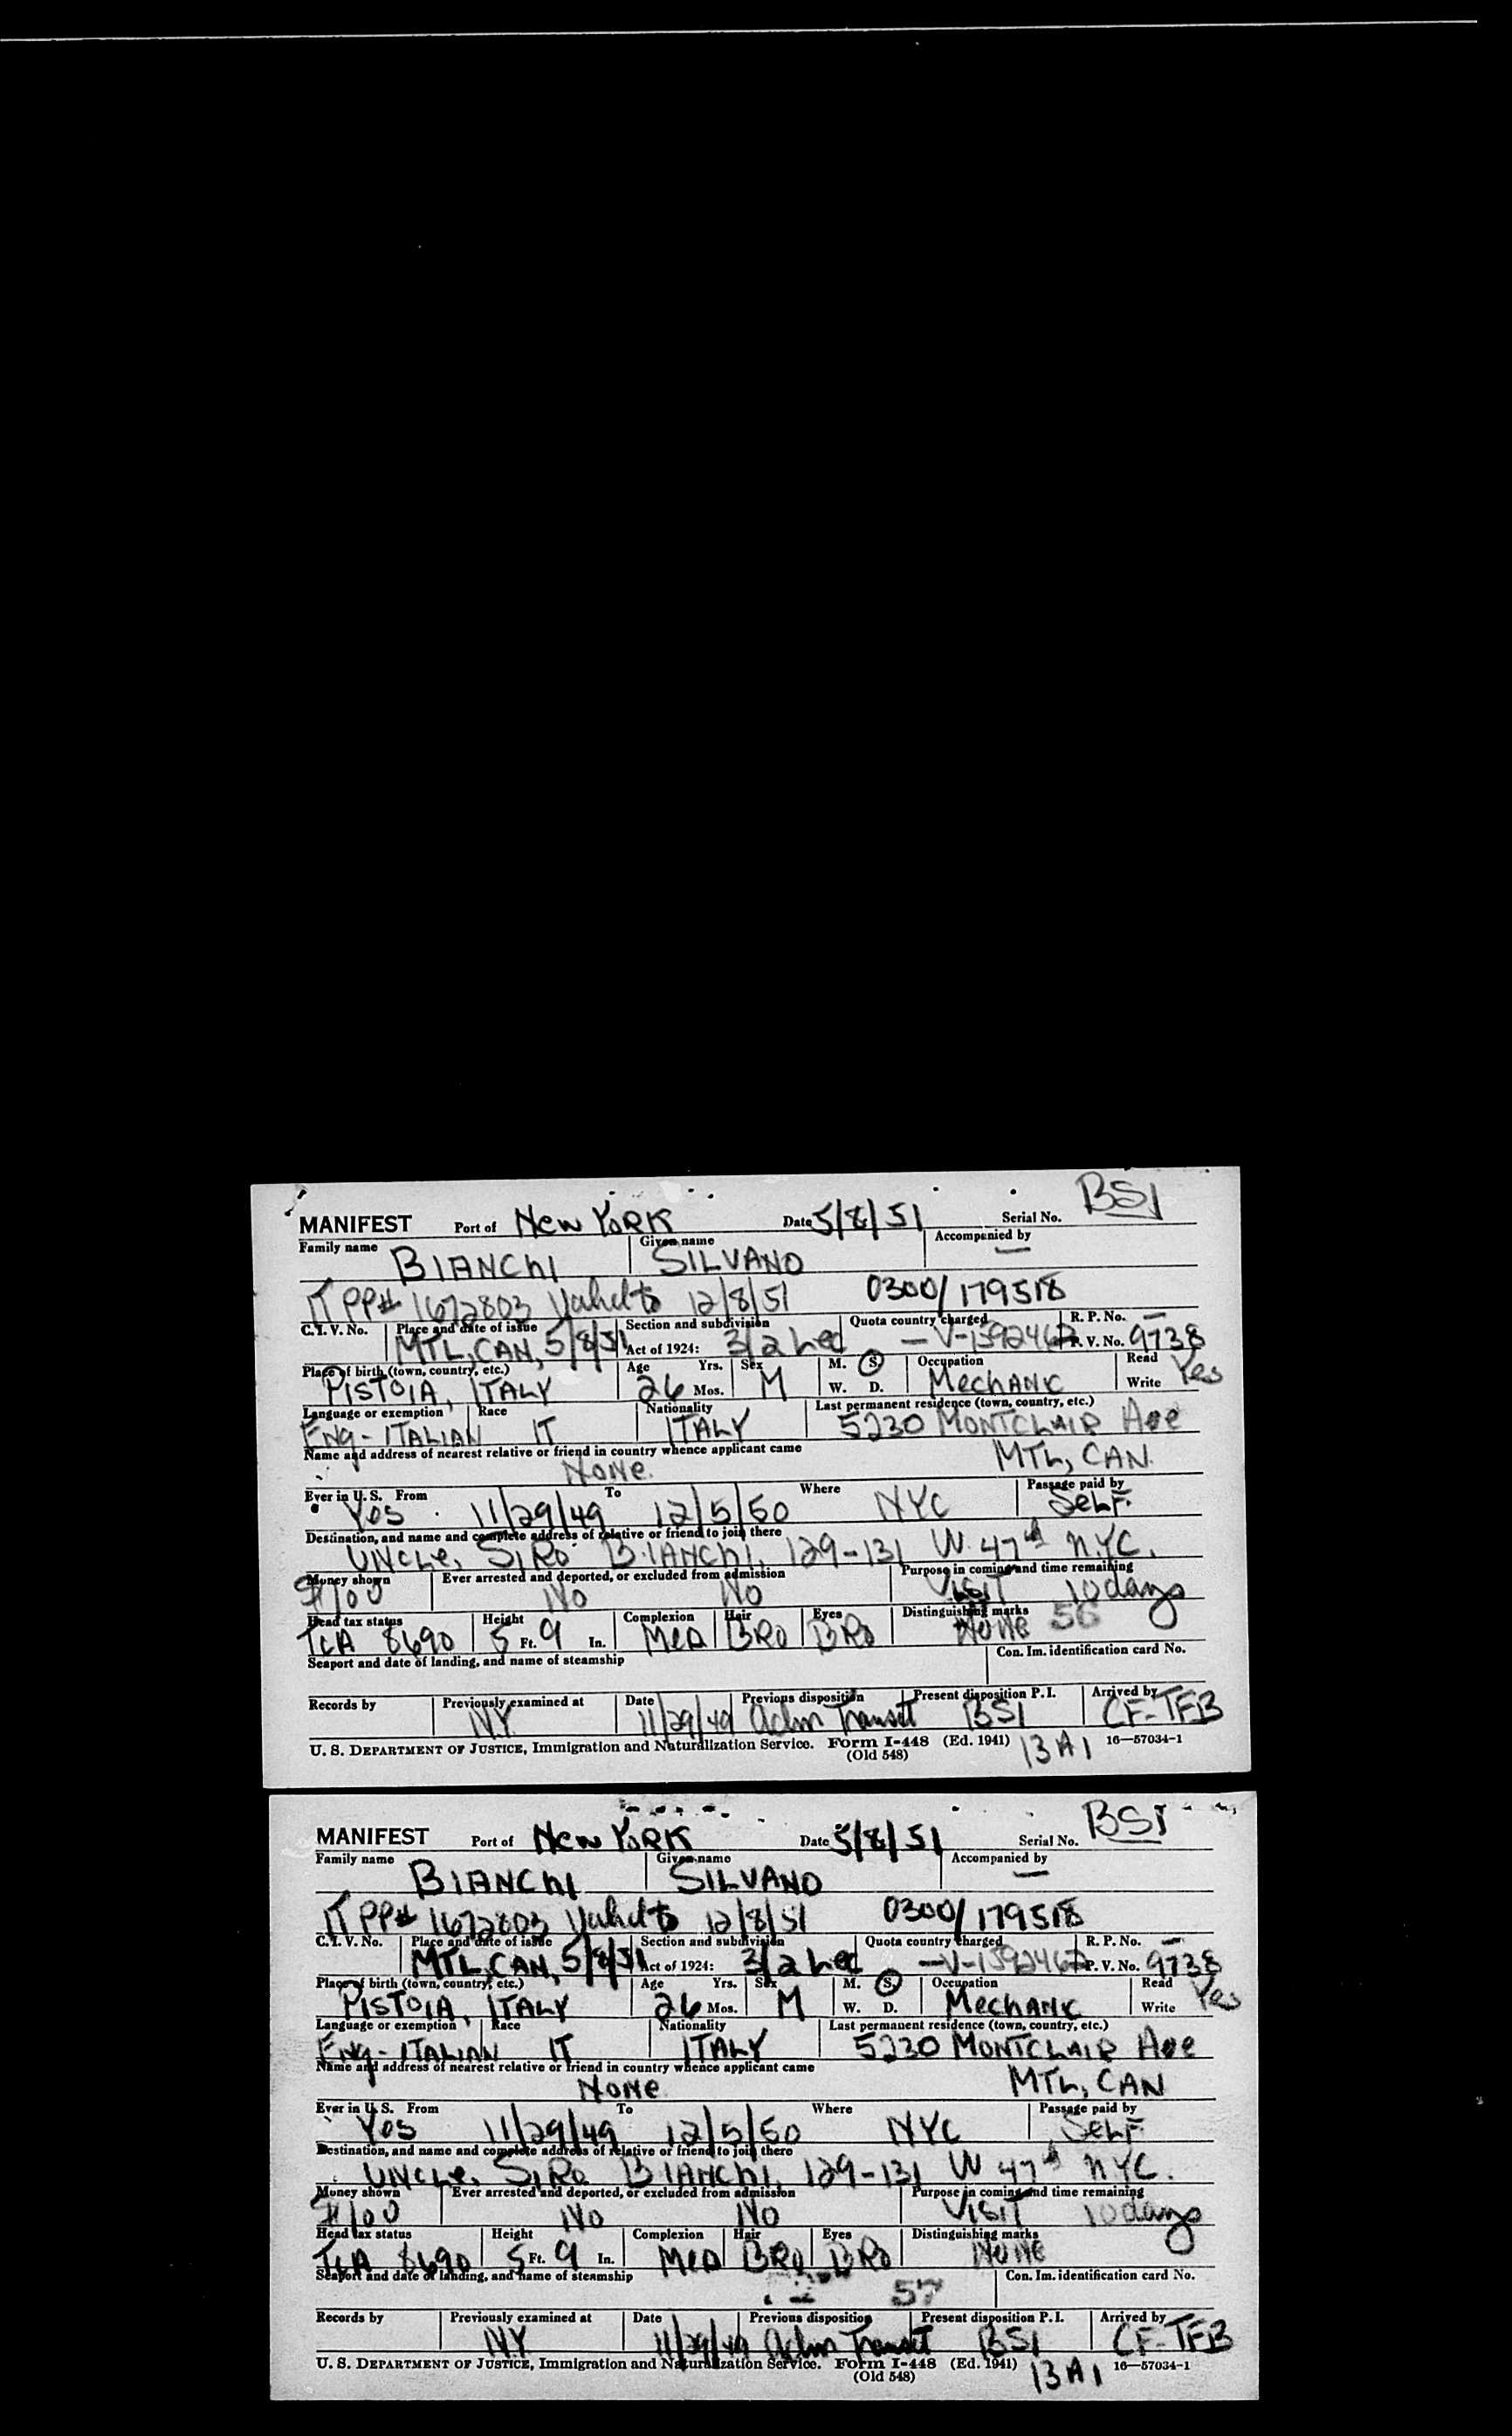 BSI
MANIFEST Port of New York Date 5/8/51 Serial No.
Family name BIANCHI Given name SILVANO Accompanied by —
IT PP# 1672803 Valid to 12/8/51 0300/179518
C. I. V. No. Place and date of issue MTL, CAN, 5/8/51 Section and subdivision Act of 1924: 3/2 Quota country charged — V-1392467 R. P. No. — P. V. No. 9738
Place of birth (town, country, etc.) PISTOIA, ITALY Age 26 Yrs. Mos. Sex M M. S. W. D. Occupation Mechanic Read Write Yes
Language or exemption Eng - ITALIAN Race IT Nationality ITALY Last permanent residence (town, country, etc.) 5230 MONTCLAIR Ave
Name and address of nearest relative or friend in country whence applicant came None MTL, CAN.
Ever in U. S. Yes From 11/29/49 To 12/5/50 Where NYC Passage paid by SELF.
Destination, and name and complete address of relative or friend to join there
UNCLE, SIRO BIANCHI, 129-131 W. 47th N.Y.C.
Money shown $100 Ever arrested and deported, or excluded from admission No No Purpose in coming and time remaining VISIT 10 days
Head tax status TCA 8690 Height 5 Ft. 9 In. Complexion MED Hair BRO Eyes BRO Distinguishing marks None 56
Seaport and date of landing, and name of steamship Con. Im. identification card No.
Records by Previously examined at NY Date 11/29/49 Previous disposition Adm Transit Present disposition P. I. BSI Arrived by CF-TFB
U. S. DEPARTMENT OF JUSTICE, Immigration and Naturalization Service. Form I-448 (Ed. 1941) 13 A1 16—57034-1
(Old 548)
BSI
MANIFEST Port of New York Date 5/8/51 Serial No.
Family name BIANCHI Given name SILVANO Accompanied by —
IT PP# 1672803 Valid to 12/8/51 0300/179518
C. I. V. No. Place and date of issue MTL, CAN, 5/8/51 Section and subdivision Act of 1924: 3/2 Quota country charged — V-1392467 R. P. No. — P. V. No. 9738
Place of birth (town, country, etc.) PISTOIA, ITALY Age 26 Yrs. Mos. Sex M M. S. W. D. Occupation Mechanic Read Write Yes
Language or exemption Eng - ITALIAN Race IT Nationality ITALY Last permanent residence (town, country, etc.) 5230 MONTCLAIR Ave
Name and address of nearest relative or friend in country whence applicant came None MTL, CAN
Ever in U. S. Yes From 11/29/49 To 12/5/50 Where NYC Passage paid by SELF
Destination, and name and complete address of relative or friend to join there
UNCLE, SIRO BIANCHI, 129-131 W 47th N.Y.C.
Money shown $100 Ever arrested and deported, or excluded from admission No No Purpose in coming and time remaining VISIT 10 days
Head tax status TCA 8690 Height 5 Ft. 9 In. Complexion MED Hair BRO Eyes BRO Distinguishing marks None
Seaport and date of landing, and name of steamship 57 Con. Im. identification card No.
Records by Previously examined at NY Date 11/29/49 Previous disposition Adm Transit Present disposition P. I. BSI Arrived by CF-TFB
U. S. DEPARTMENT OF JUSTICE, Immigration and Naturalization Service. Form I-448 (Ed. 1941) 13 A1 16—57034-1
(Old 548)